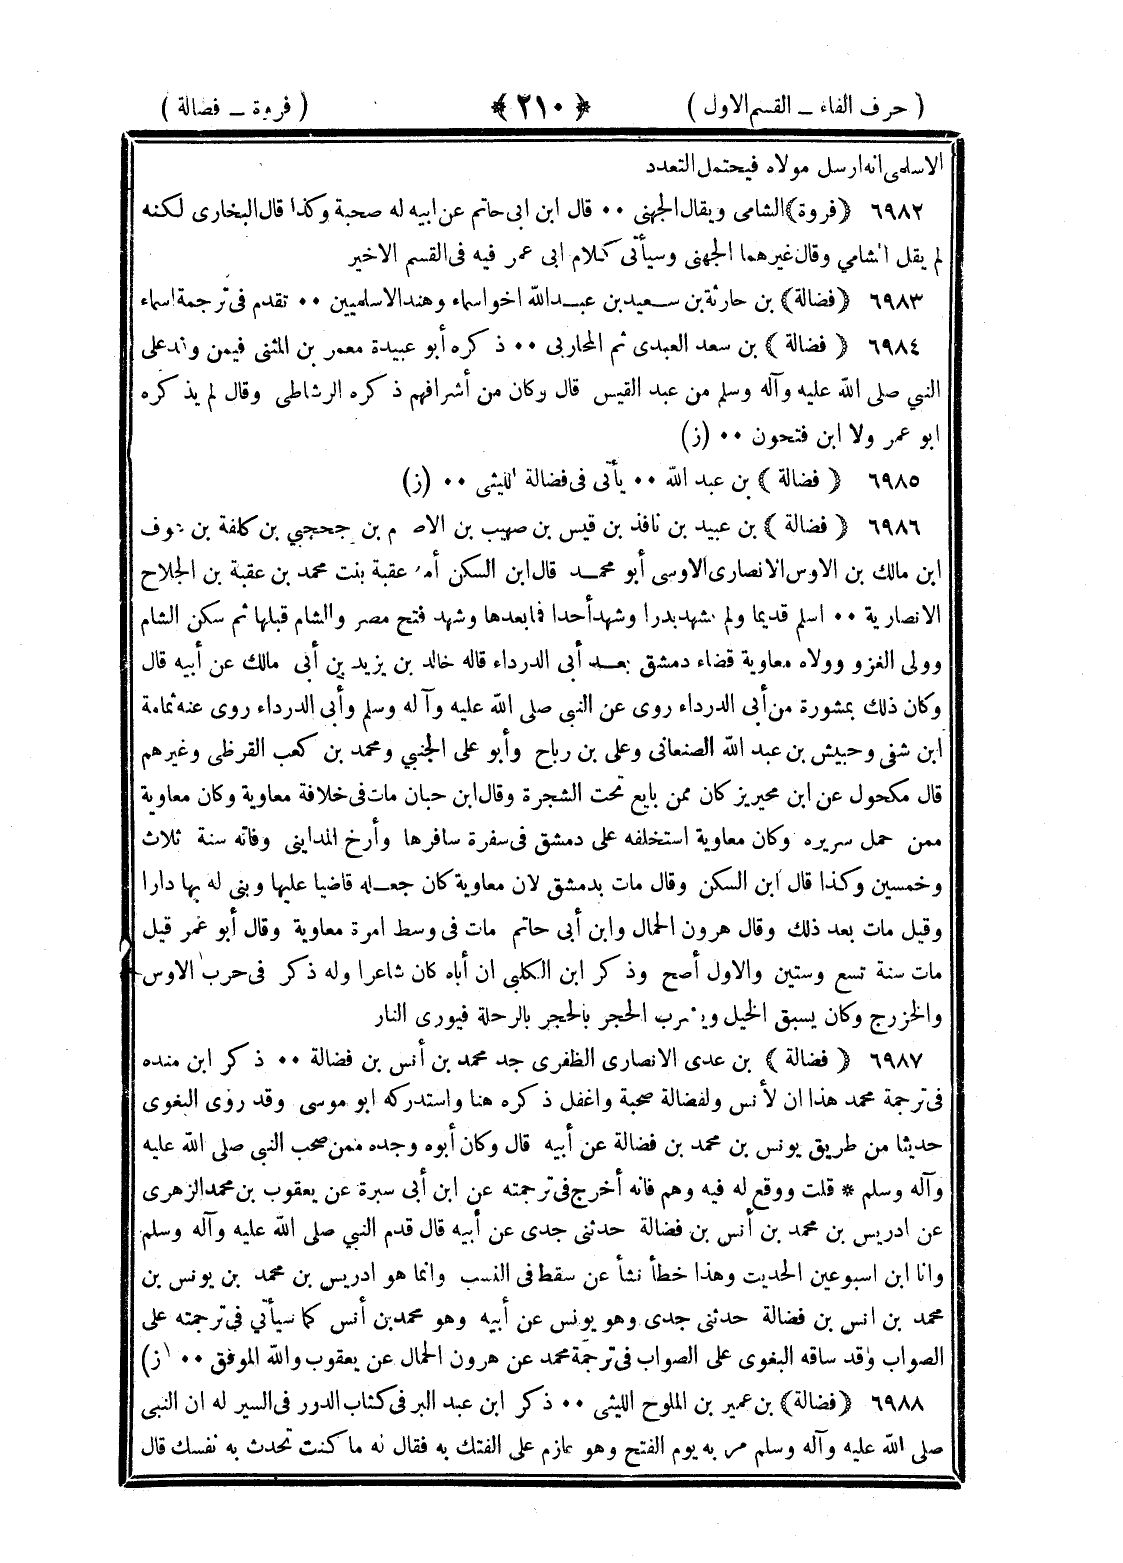 ( حرف الفاء ــ القسم الاول ) ﴿ ٢١٠ ﴾ ( فروة ــ فضالة )
الاسلمى انه ارسل مولاه فيحتمل التعدد
٦٩٨٢ ﴿ فروة ﴾ الشامى ويقال الجهنى ٠٠ قال ابن ابى حاتم عن ابيه له صحبة وكذا قال البخارى لكنه
لم يقل الشامي وقال غيرهما الجهنى وسيأتى كلام ابى عمر فيه فى القسم الاخير
٦٩٨٣ ﴿ فضالة ﴾ بن حارثة بن سعيد بن عبد الله اخو اسماء وهند الاسلميين ٠٠ تقدم فى ترجمة اسماء
٦٩٨٤ ﴿ فضالة ﴾ بن سعد العبدى ثم المحاربى ٠٠ ذكره أبو عبيدة معمر بن المثنى فيمن وفد على
النبي صلى الله عليه وآله وسلم من عبد القيس قال وكان من أشرافهم ذكره الرشاطى وقال لم يذكره
ابو عمر ولا ابن فتحون ٠٠ (ز)
٦٩٨٥ ﴿ فضالة ﴾ بن عبد الله ٠٠ يأتى فى فضالة الليثى ٠٠ (ز)
٦٩٨٦ ﴿ فضالة ﴾ بن عبيد بن نافذ بن قيس بن صهيب بن الاصرم بن جحجبي بن كلفة بن عوف
ابن مالك بن الاوس الانصارى الاوسى أبو محمد قال ابن السكن أمه عقبة بنت محمد بن عقبة بن الجلاح
الانصارية ٠٠ اسلم قديما ولم يشهد بدرا وشهد أحدا فما بعدها وشهد فتح مصر والشام قبلها ثم سكن الشام
وولى الغزو وولاه معاوية قضاء دمشق بعد أبى الدرداء قاله خالد بن يزيد بن أبى مالك عن أبيه قال
وكان ذلك بمشورة من أبى الدرداء روى عن النبى صلى الله عليه وآله وسلم وأبى الدرداء روى عنه ثمامة
ابن شفى وحبيش بن عبد الله الصنعانى وعلى بن رباح وأبو على الجنبي ومحمد بن كعب القرظى وغيرهم
قال مكحول عن ابن محيريز كان ممن بايع تحت الشجرة وقال ابن حبان مات فى خلافة معاوية وكان معاوية
ممن حمل سريره وكان معاوية استخلفه على دمشق فى سفرة سافرها وأرخ المداينى وفاته سنة ثلاث
وخمسين وكذا قال ابن السكن وقال مات بدمشق لان معاوية كان جعله قاضيا عليها وبنى له بها دارا
وقيل مات بعد ذلك وقال هرون الحمال وابن أبى حاتم مات فى وسط امرة معاوية وقال أبو عمر قيل
مات سنة تسع وستين والاول أصح وذكر ابن الكلبى ان أباه كان شاعرا وله ذكر فى حرب الاوس
والخزرج وكان يسبق الخيل ويضرب الحجر بالحجر بالرحلة فيورى النار
٦٩٨٧ ﴿ فضالة ﴾ بن عدى الانصارى الظفرى جد محمد بن أنس بن فضالة ٠٠ ذكر ابن منده
فى ترجمة محمد هذا ان لأنس ولفضالة صحبة واغفل ذكره هنا واستدركه ابو موسى وقد روى البغوى
حديثا من طريق يونس بن محمد بن فضالة عن أبيه قال وكان أبوه وجده ممن صحب النبي صلى الله عليه
وآله وسلم * قلت ووقع له فيه وهم فانه أخرج فى ترجمته عن ابن أبى سبرة عن يعقوب بن محمد الزهرى
عن ادريس بن محمد بن أنس بن فضالة حدثنى جدى عن أبيه قال قدم النبي صلى الله عليه وآله وسلم
وانا ابن اسبوعين الحديث وهذا خطأ نشأ عن سقط فى النسب وانما هو ادريس بن محمد بن يونس بن
محمد بن انس بن فضالة حدثنى جدى وهو يونس عن أبيه وهو محمد بن أنس كما سيأتي فى ترجمته على
الصواب وقد ساقه البغوى على الصواب فى ترجمة محمد عن هرون الحمال عن يعقوب والله الموفق ٠٠ (ز)
٦٩٨٨ ﴿ فضالة ﴾ بن عمير بن الملوح الليثى ٠٠ ذكر ابن عبد البر فى كتاب الدور فى السير له ان النبى
صلى الله عليه وآله وسلم مر به يوم الفتح وهو عازم على الفتك به فقال له ما كنت تحدث به نفسك قال